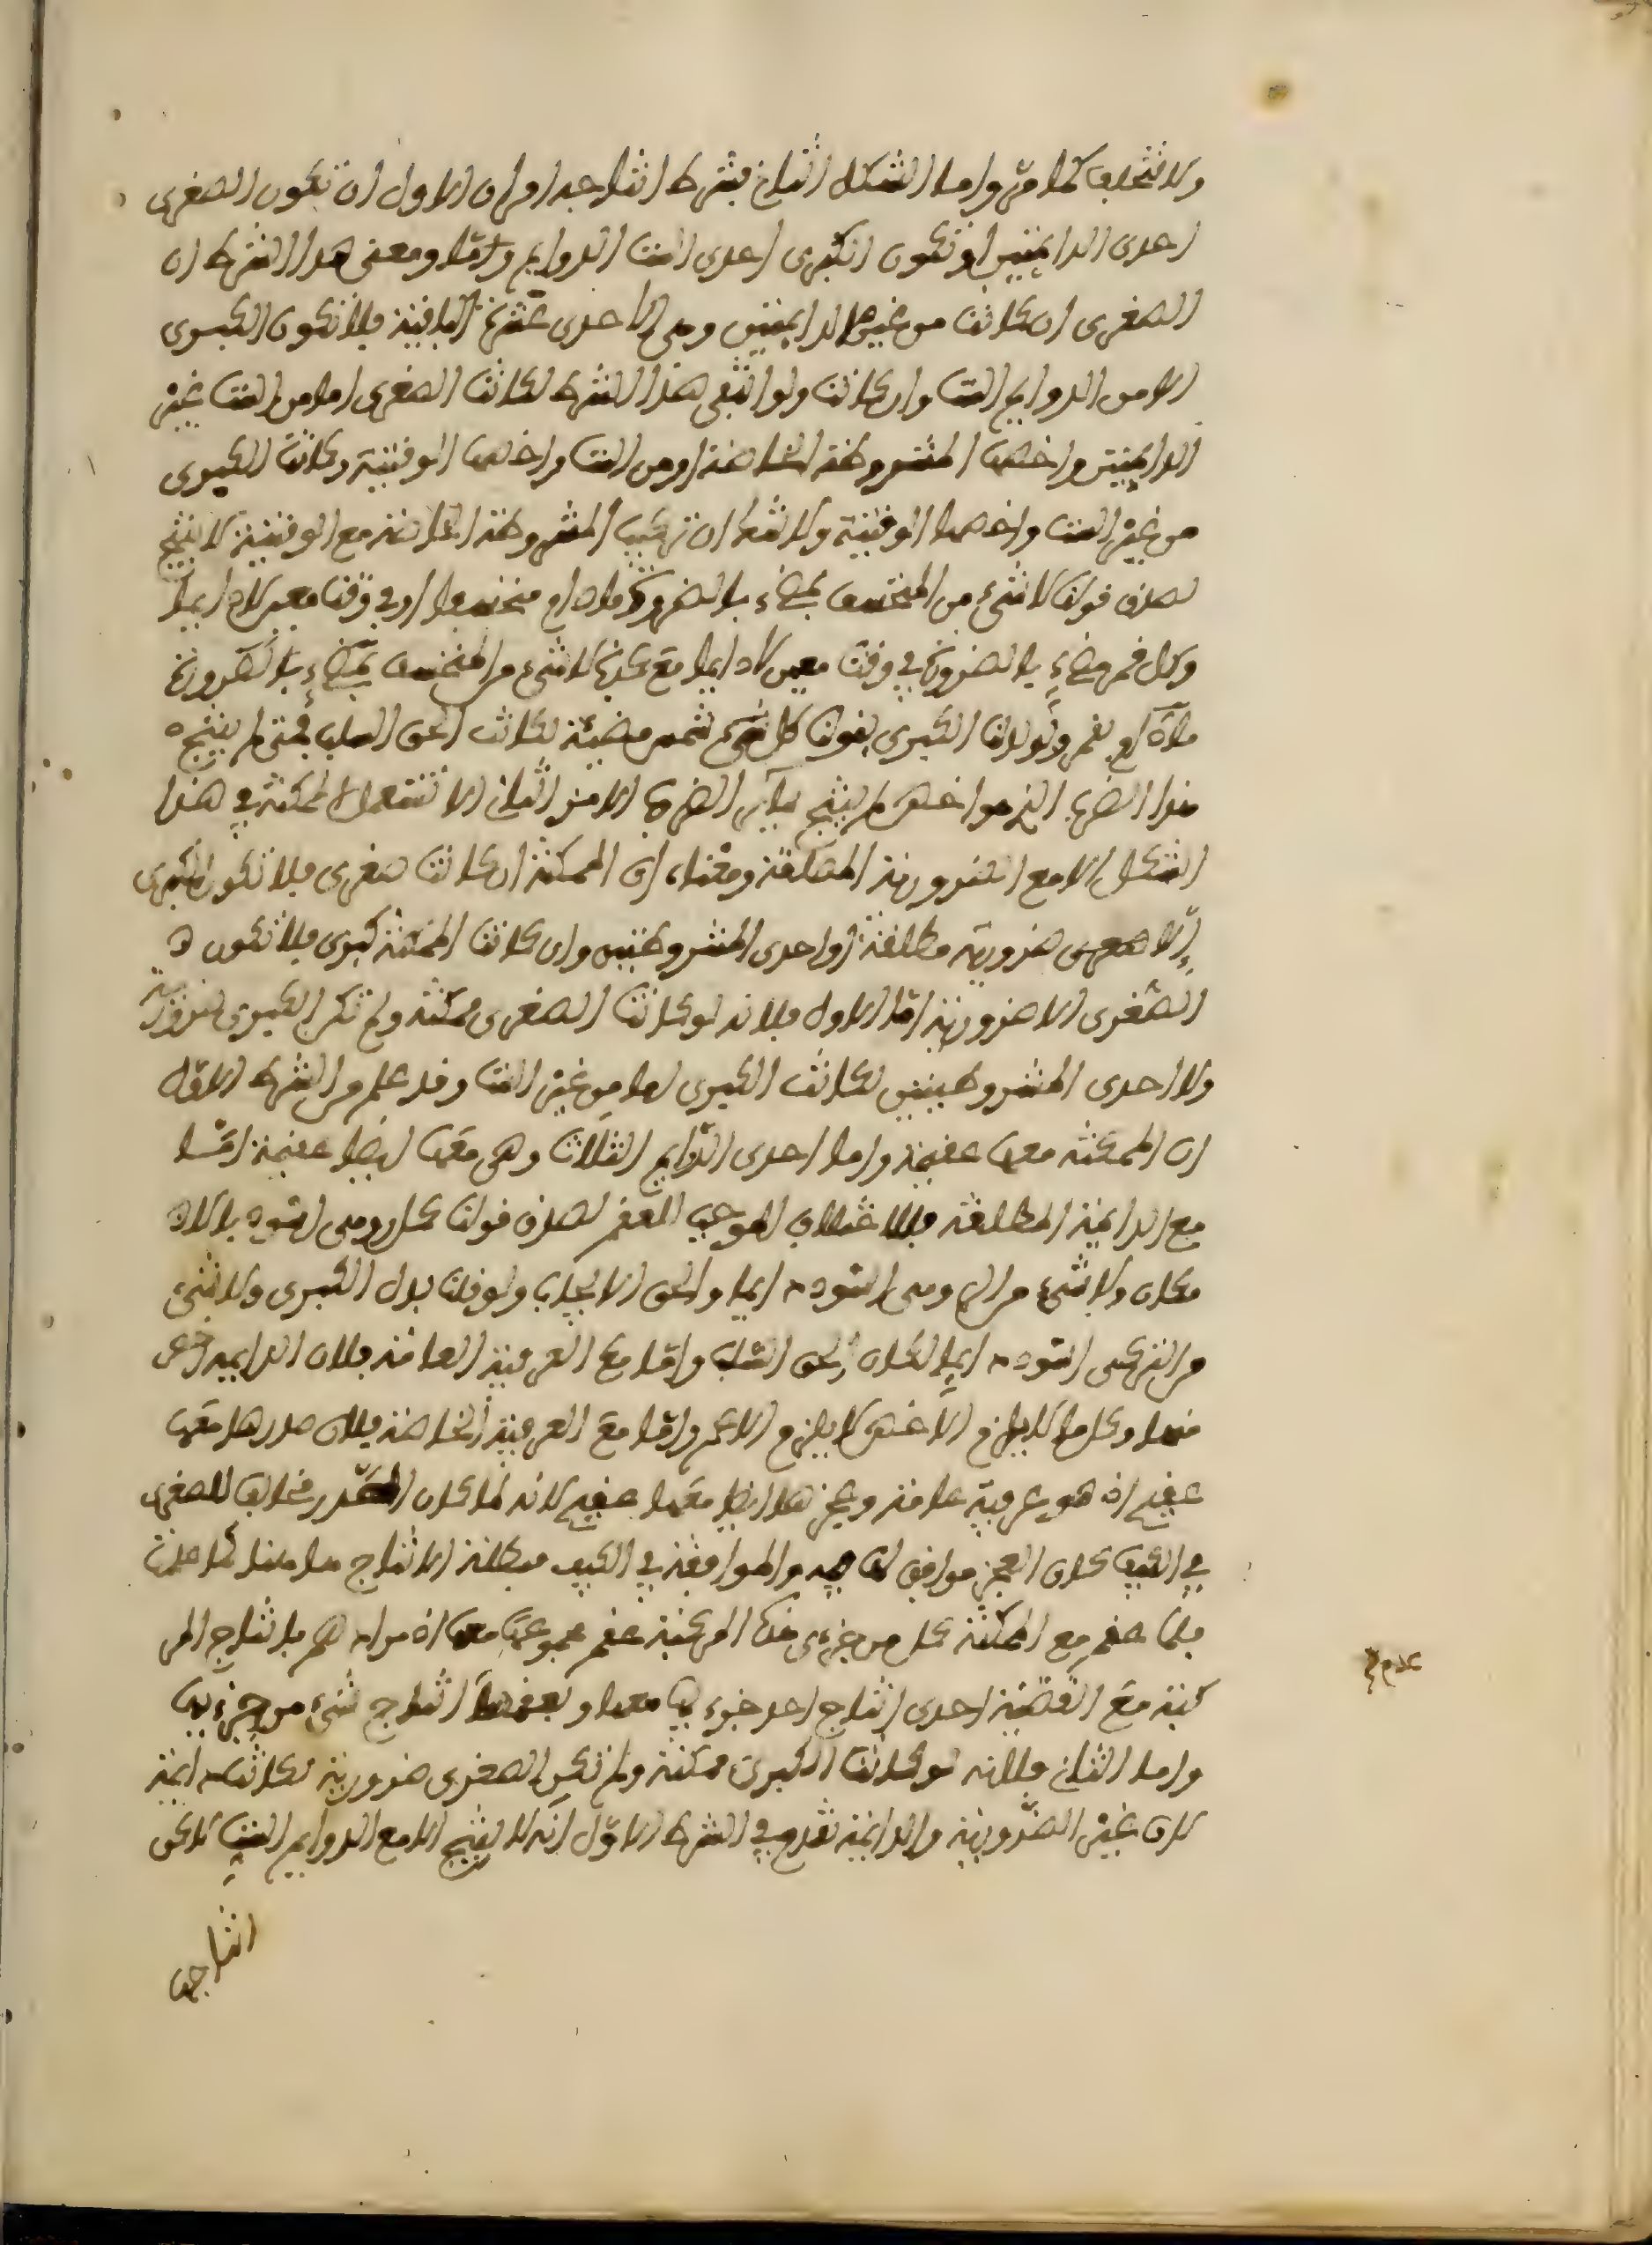 ولا تختلف كما مر واما الشكل الثاني فشرط انتاجه امران الاول ان تكون الصغرى
احدى الدايمتين او تكون الكبرى احدى الست الدوايم واما ومعنى هذا الشرط ان
الصغرى ان كانت من غير الدايمتين وهي الاحدى عشرة الباقية فلا تكون الكبرى
الا من الدوايم الست وان كانت ولو انتفى هذا الشرط لكانت الصغرى اما من الست غير
الدايمتين واخصها المشروطة الخاصة او من الست واخصها الوقتية وكانت الكبرى
من غير الست واخصها الوقتية ولا شك ان تركيب المشروطة الخاصة مع الوقتية لا ينتج
لصدق قولنا لا شيء من المنخسف بمضيء بالضرورة ما دام منخسفا او في وقت معين لا دايما
وكل قمر مضيء بالضرورة في وقت معين لا دايما مع كذب لا شيء من المنخسف بمضيء بالضرورة
ما دام قمر ولو بدلنا الكبرى بقولنا كل شمس مضيئة لكانت الحق السلب فمتى لم ينتج
هذا الضرب الذي هو اخص لم ينتج ساير الضروب الامر الثاني الا تستعمل الممكنة في هذا
الشكل الا مع الضرورية المطلقة ومعناه ان الممكنة ان كانت صغرى فلا تكون الكبرى
الا ضرورية مطلقة او احدى المشروطتين وان كانت الممكنة كبرى فلا تكون
الصغرى الا ضرورية اما الاول فلانه لو كانت الصغرى ممكنة ولم تكن الكبرى ضرورية
ولا احدى المشروطتين لكانت الكبرى اما من غير الست وقد علم من الشرط الاول
ان الممكنة معها عقيمة واما احدى الدوايم الثلاث وهي معها ايضا عقيمة اما
مع الدايمة المطلقة فللاختلاف الموجب للعقم لصدق قولنا كل رومي اسود بالا
مكان ولا شيء من الرومي باسود دايما والحق الايجاب ولو قلنا بدل الكبرى ولا شيء
من التركي اسود دايما لكان الحق السلب واما مع العرفية العامة فلان الدايمة اخص
منها وكل ما لا يلزم الاخص لا يلزم الاعم واما مع العرفية الخاصة فلان صدرها معها
عقيم اذ هو عرفية عامة وعجزها ايضا معها عقيم لانه لما كان الصدر مخالفا للصغرى
في الكيف كان العجز موافق لها فيه والموافقة في الكيف مبطلة الانتاج هاهنا كما علمت
فلما عقم مع الممكنة كل من جزءي هذه المركبة عقم مجموعها معها اذ مرادهم بانتاج المر
كبة مع القضية احدى انتاج احد جزءيها معها وبعقمها انتاج شيء من جزءيها
واما الثاني فلانه لو كانت الكبرى ممكنة ولم تكن الصغرى ضرورية لكانت دايمة
لان غير الضرورية والدايمة تقدم في الشرط الاول انه لا ينتج الا مع الدوايم الست لاكن
انتاجها
عدم